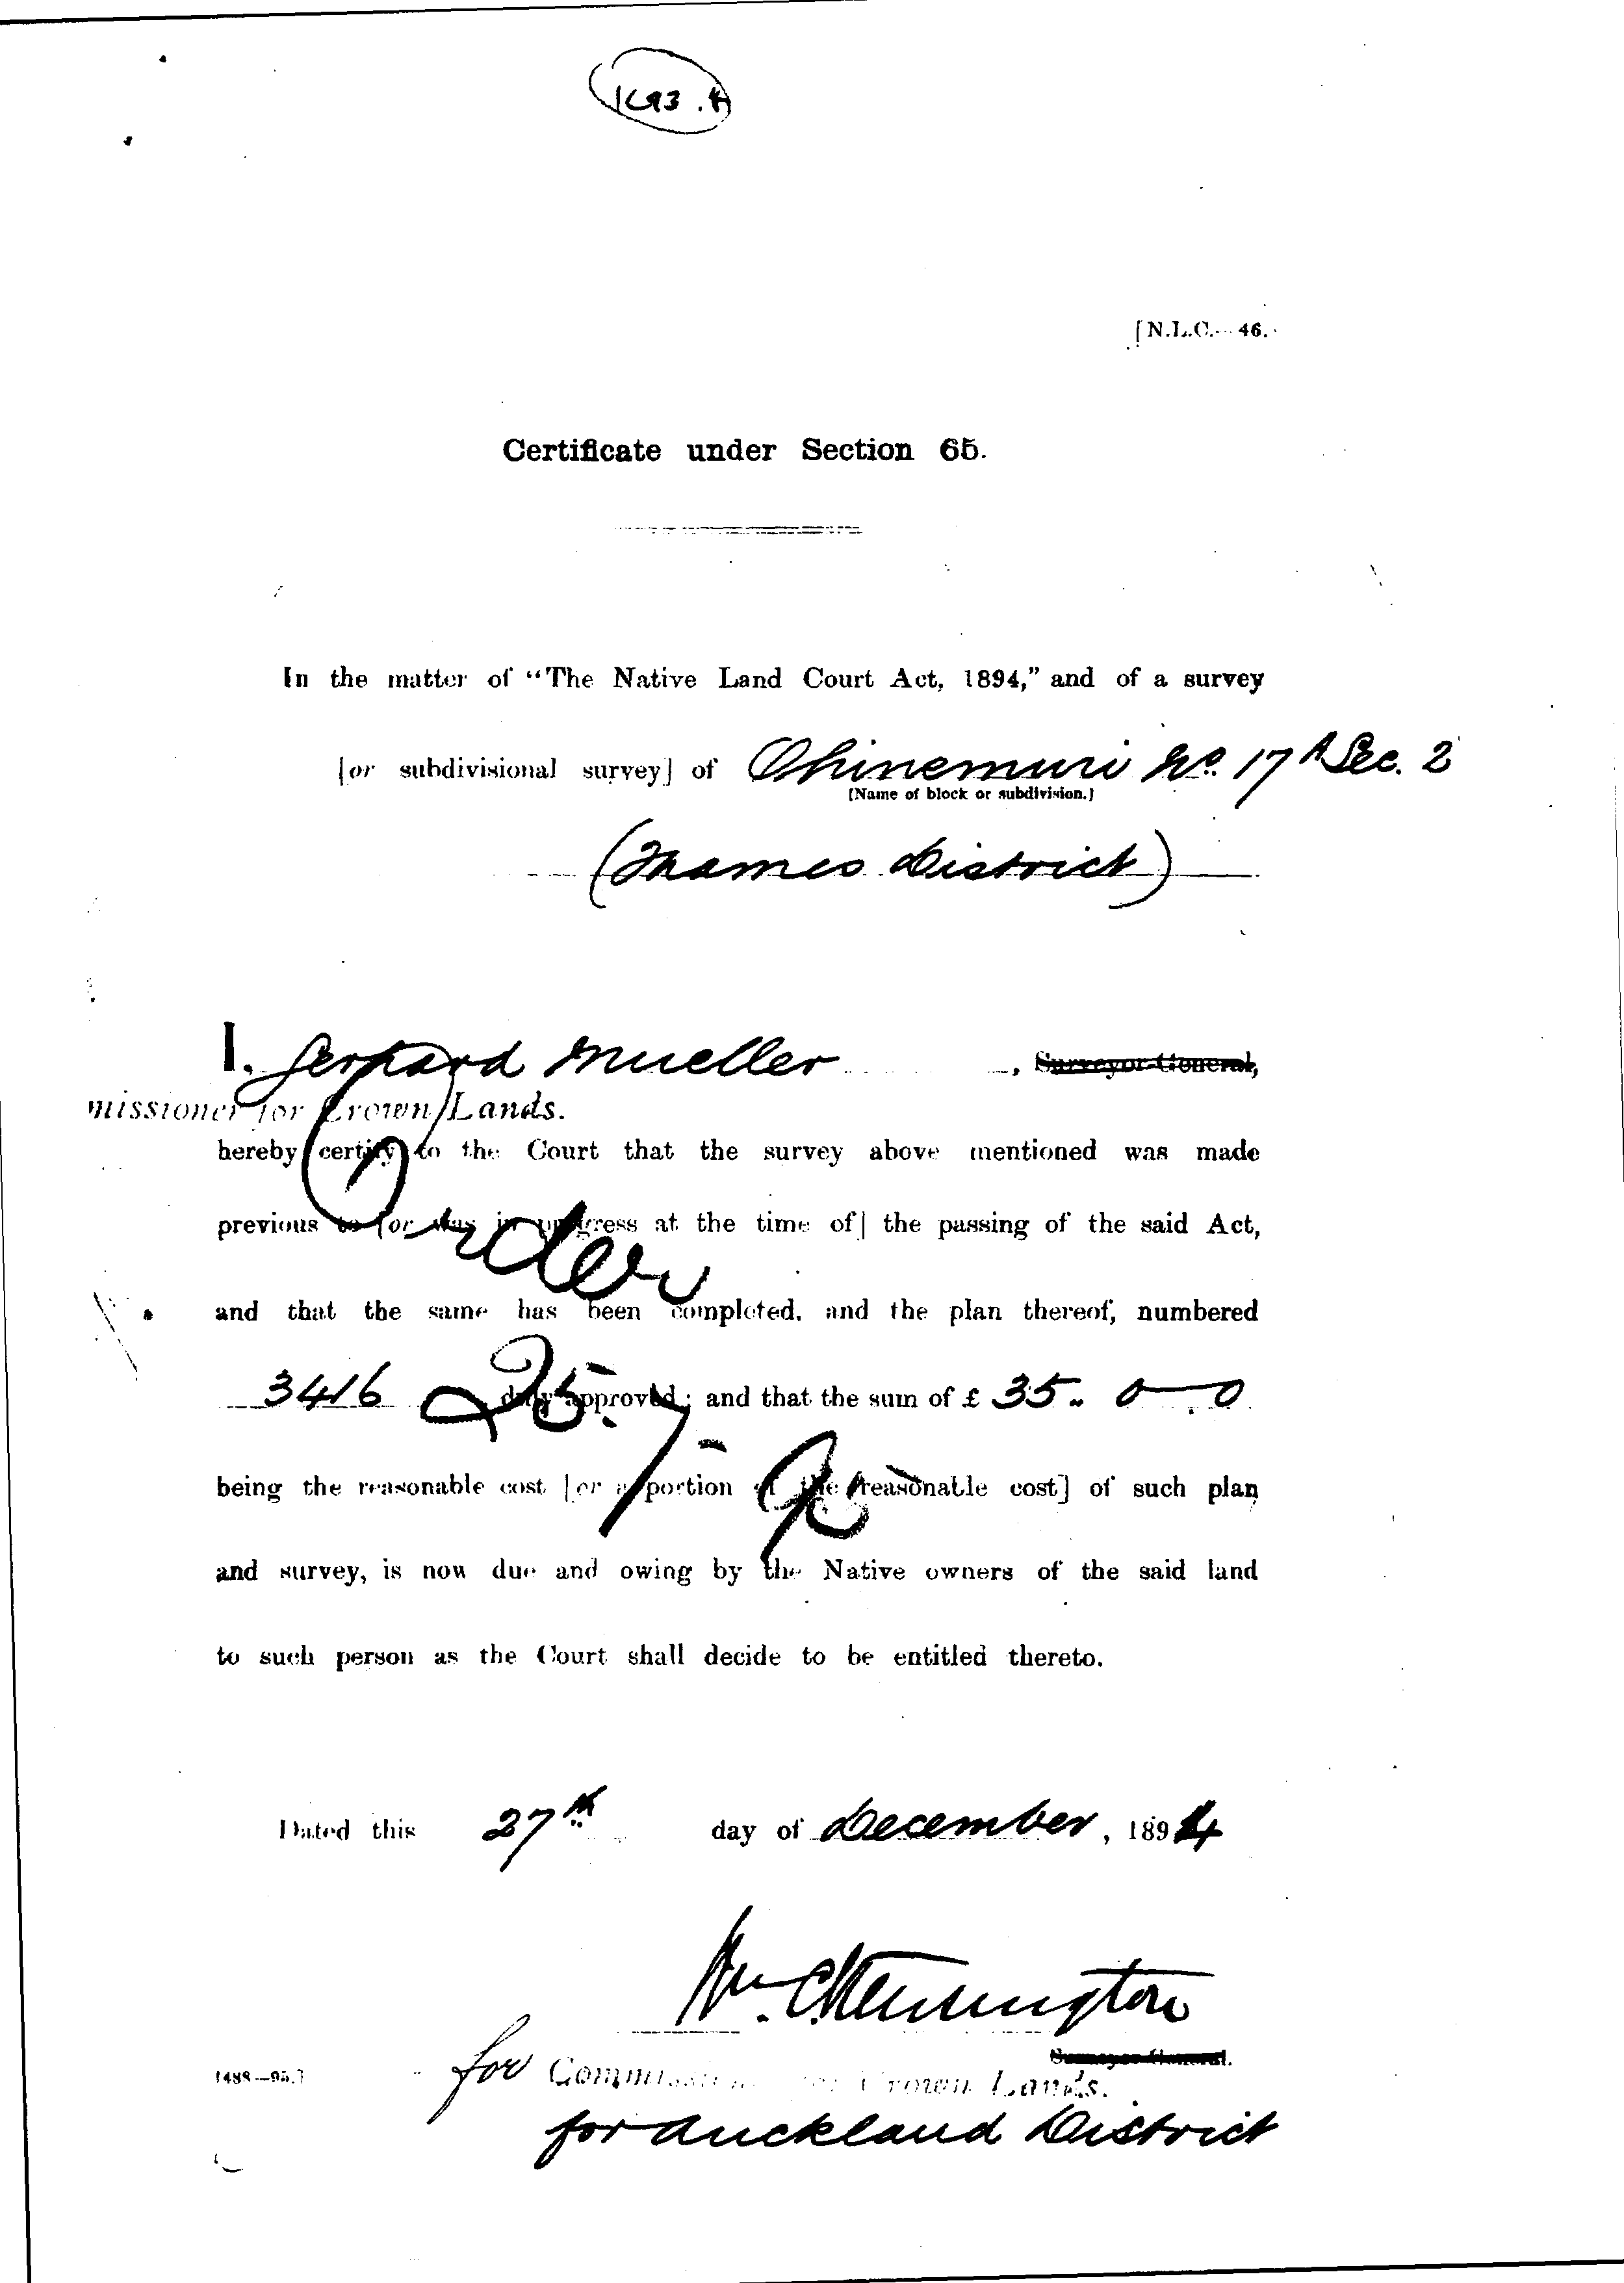 [N.L.C.—46.
Certificate under Section 65.
In the matter of "The Native Land Court Act, 1894," and of a survey
[or subdivisional survey] of Ohinemuri No. 17A Sec. 2
[Name of block or subdivision.]
(Thames District)
I, Gerhard Mueller, Surveyor-General,
missioner for Crown Lands.
hereby certify to the Court that the survey above mentioned was made
previous to [or was in progress at the time of] the passing of the said Act,
Order
and that the same has been completed, and the plan thereof, numbered
3416 duly approved; and that the sum of £ 35 . 0 . 0
being the reasonable cost [or a portion of the reasonable cost] of such plan
and survey, is now due and owing by the Native owners of the said land
to such person as the Court shall decide to be entitled thereto.
Dated this 27th day of December, 1894
Wm. C. Kensington
Surveyor-General.
1488—95.]
for Commissioner for Crown Lands.
for Auckland District